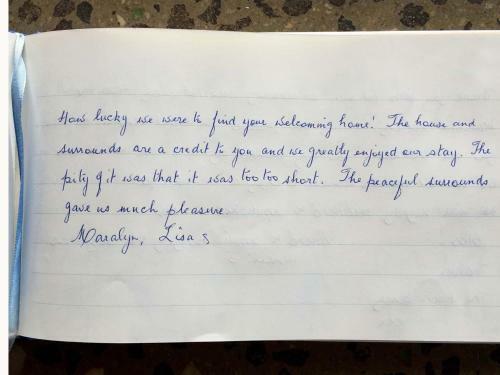 How lucky we were to find your welcoming home! The house and
surrounds are a credit to you and we greatly enjoyed our stay. The
pity of it was that it was too too short. The peaceful surrounds
gave us much pleasure.
Maralyn, Lisa &